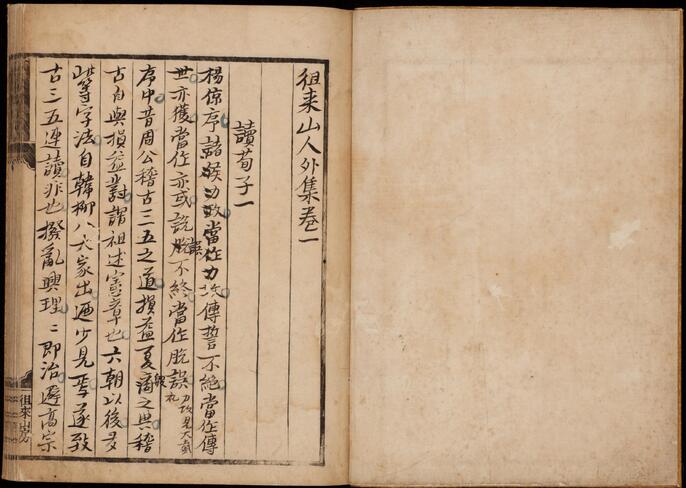 徂来山人外集卷一
讀荀子一
楊倞序諸侯力政當作力攻傳誓不絕當作傳
世亦獲當作亦或說脫不終當作脫誤
力攻見大戴礼
序中昔周公稽古三五之道損益夏商之典稽
殷
古自與損益對謂祖述憲章也六朝以後多
此等字法自韓柳八大家出迺少見焉遂致
古三五連讀非也撥亂興理理即治避高宗
徂來山房